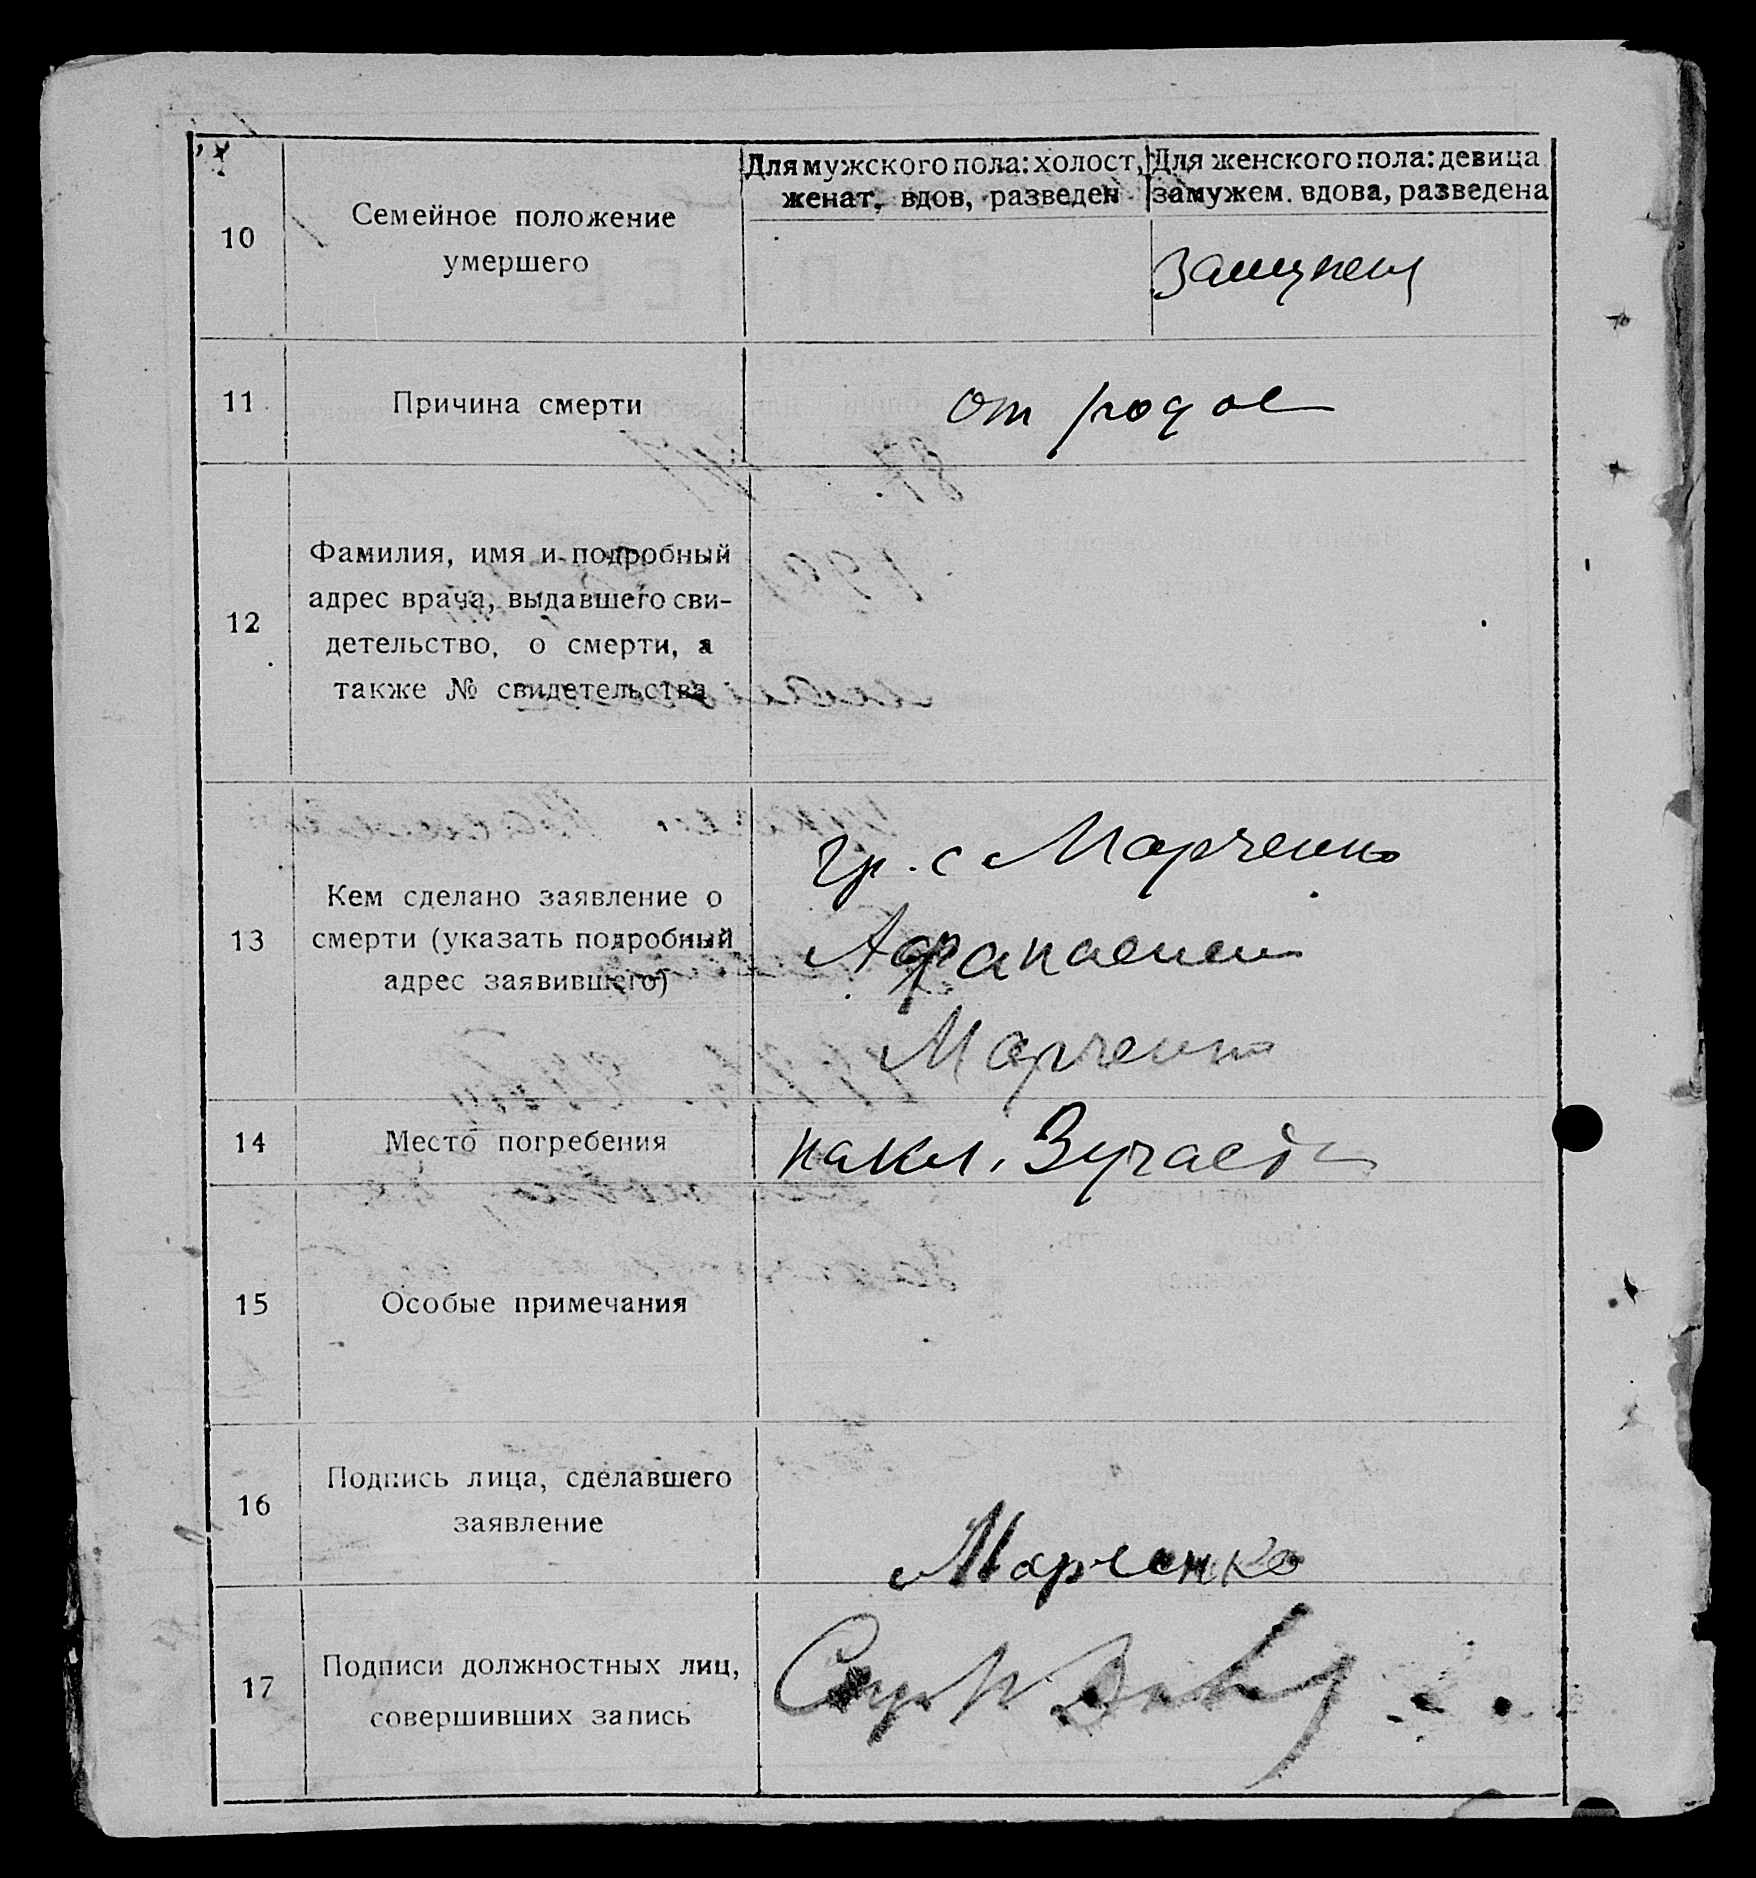 10
Семейное положение
умершего
Для мужского пола: холост,
женат, вдов, разведен
Для женского пола: девица
замужем. вдова, разведена
замужем
11
Причина смерти
от родов
12
Фамилия, имя и подробный
адрес врача, выдавшего сви-
детельство, о смерти, а
также № свидетельства
13
Кем сделано заявление о
смерти (указать подробный
адрес заявившего)
гр. с Марченко
Марченко
14
Место погребения
на кл.
15
Особые примечания
16
Подпись лица, сделавшего
заявление
Марченко
17
Подписи должностных лиц,
совершивших запись